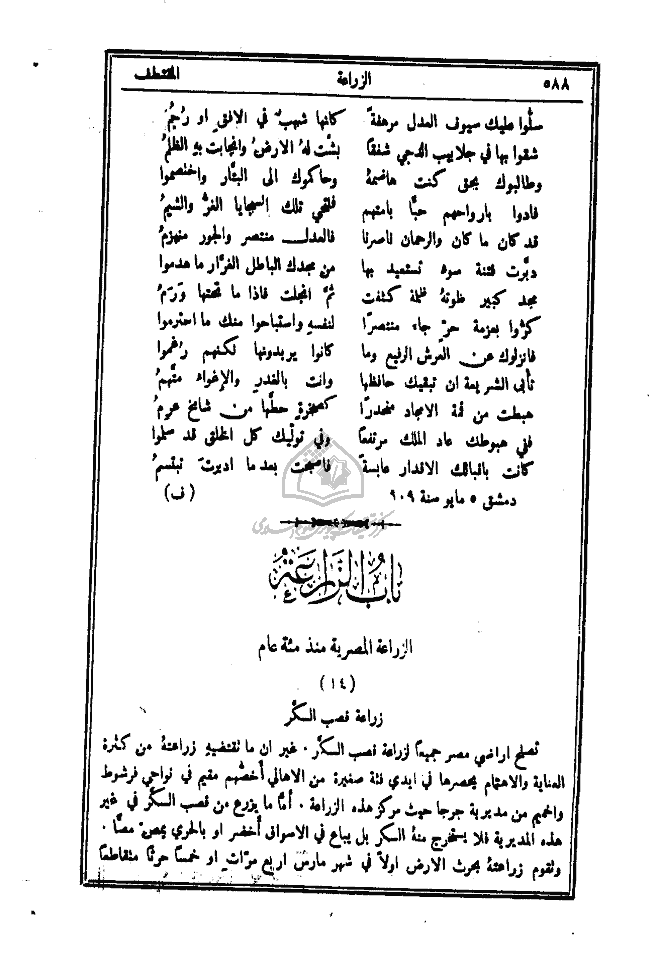 ٥٨٨ الزراعة المقتطف
سلُّوا عليك سيوف العدل مرهفةً كانها شهبٌ في الافق او رُجُمُ
شقوا بها في جلابيب الدجى شفقًا بشَّت لهُ الارضُ وانجابت بهِ الظلمُ
وطالبوك بحق كنت هاضمهُ وحاكموك الى البتَّار واختصموا
فادوا بارواحهم حبًّا بامتهم فلتحي تلك السجايا الغرُّ والشيمُ
قد كان ما كان والرحمان ناصرنا فالعدل منتصر والجور منهزمُ
دبَّرت فتنة سوءٍ تستعيد بها من مجدك الباطل الغرَّار ما هدموا
مجد كبير طوتهُ ظلمة كثفت ثمَّ انجلت فاذا ما تحتها وَرَمُ
كرُّوا بعزمة حرٍّ جاء منتصرًا لنفسهِ واستباحوا منك ما احترموا
فانزلوك عن العرش الرفيع وما كانوا يريدونها لكنهم رُغموا
تأبى الشريعة ان تبقيك حافظها وانت بالغدر والإغواء متَّهمُ
هبطت من قمة الامجاد منحدرًا كصخرةٍ حطَّها من شامخ عرِمُ
ففي هبوطك عاد الملك مرتفعًا وفي توليك كل الخلق قد سلموا
كانت باقبالك الاقدار عابسةً فاصبحت بعد ما ادبرتَ تبتسمُ
دمشق ٥ مايو سنة ٩٠٩ (ف)
باب الزراعة
الزراعة المصرية منذ مئة عام
(١٤)
زراعة قصب السكَّر
تصلح اراضي مصر جميعًا لزراعة قصب السكَّر . غير ان ما تقتضيهِ زراعتهُ من كثرة
العناية والاهتمام يحصرها في ايدي فئة صغيرة من الاهالي أخصُّهم مقيم في نواحي فرشوط
واخميم من مديرية جرجا حيث مركز هذه الزراعة . أمَّا ما يزرع من قصب السكَّر في غير
هذه المديرية فلا يستخرج منهُ السكر بل يباع في الاسواق أخضر او بالحري يمصُّ مصًّا .
وتقوم زراعتهُ بحرث الارض اولاً في شهر مارس اربع مرَّات او خمسًا حرثًا متقاطعًا